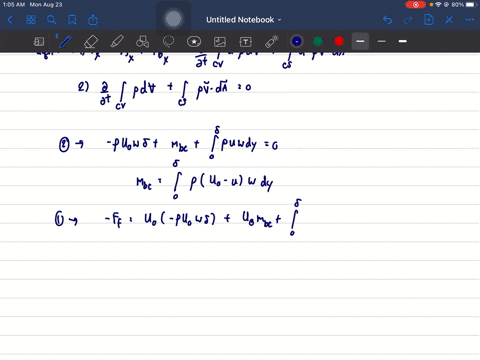 1:05 AM Mon Aug 23
80%
Untitled Notebook
2) ∂/∂t ∫_CV ρ dV + ∫_CS ρV⃗·dA⃗ = 0
② → -ρU₀wδ + ṁ_bc + ∫₀^δ ρuwdy = 0
ṁ_bc = ∫₀^δ ρ(U₀-u) w dy
① → -F_f = U₀(-ρU₀wδ) + U₀ṁ_bc + ∫₀^δ